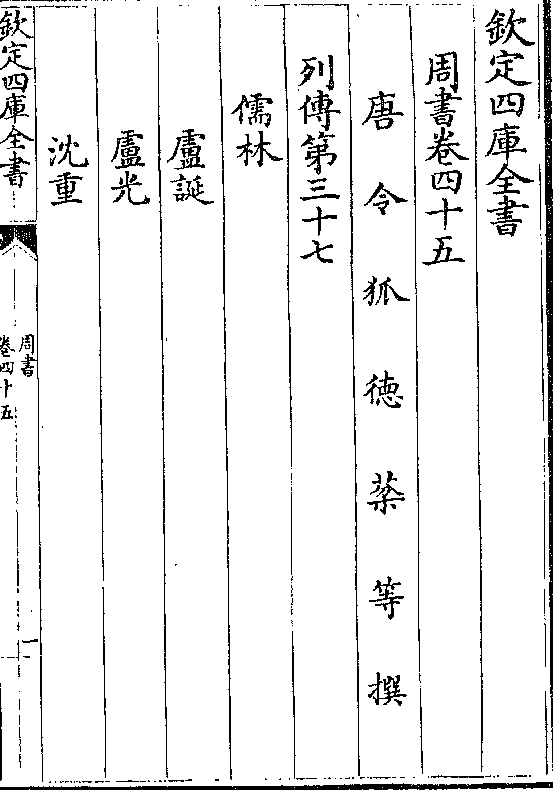 欽定四庫全書
周書卷四十五
唐令狐德棻等撰
列傳第三十七
儒林
盧誕
盧光
沈重
欽定四庫全書
周書
卷四十五
一